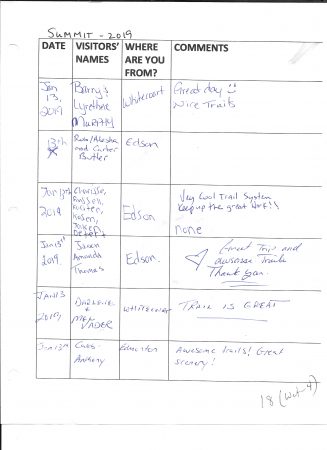 SUMMIT - 2019
DATE VISITORS' NAMES WHERE ARE YOU FROM? COMMENTS
Jan 13, 2019 Barry & Lynethe Murphy Whitecourt Great day
Nice Trails
13th and Carter Butler Edson
Jan 13th 2019 Charisse, Russell, Kosen, Edson Very Cool Trail System
Keep up the great work!!
none
Jan 13th 2019. Jason Amanda Thomas Edson. Great Trip and
awesome Trails
Thank you.
JAN 13 2019 & MEL VADER WHITECOURT TRAIL IS GREAT
Jan 13th Anthony Edmonton Awesome trails! Great
scenery!
18 (Wet 4)